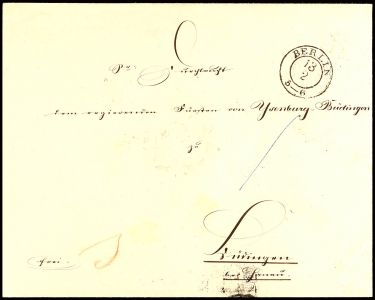 BERLIN
13
2
5-6
Sr Durchlaucht
dem regierenden Fürsten von Ysenburg-Büdingen
zu
Büdingen
bei Hanau.
frei.